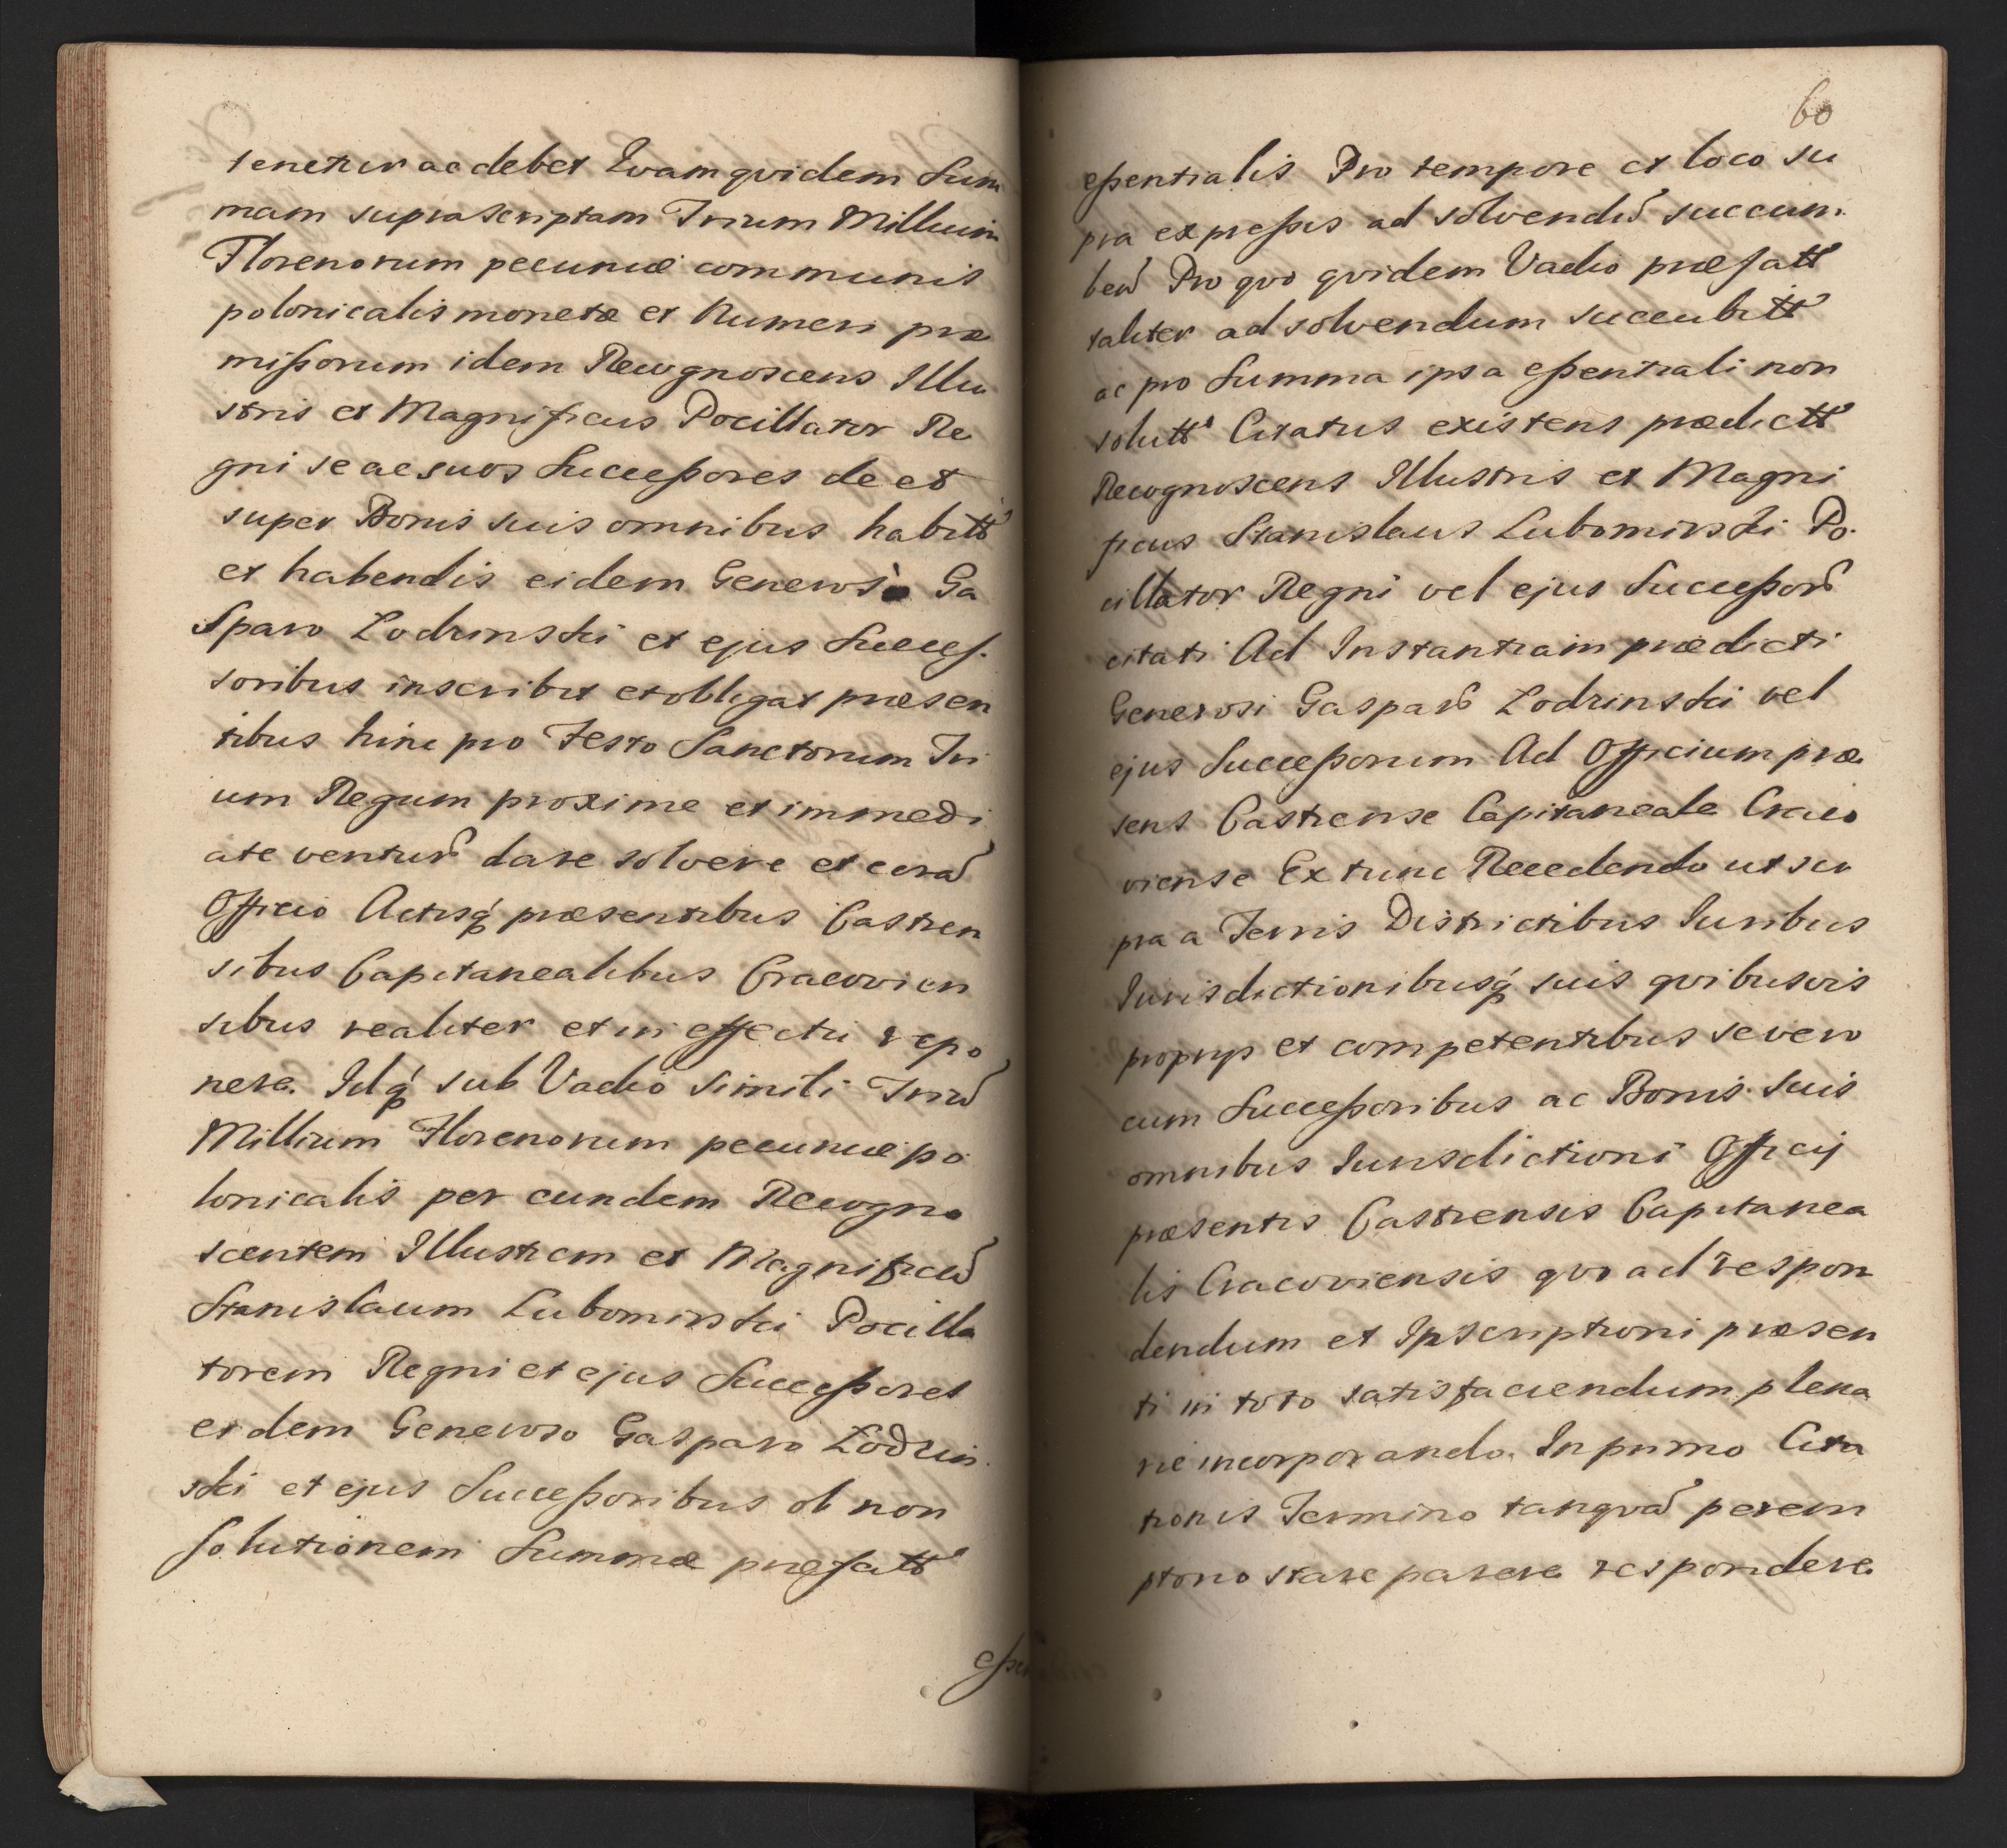 tenetur ac debet Qvam qvidem Sum
mam supra scriptam Trium Millium
Florenorum pecuniæ communis
polonicalis monetæ et Numeri præ
mißorum idem Recognoscens Illu
stris et Magnificus Pocillator Re
gni se ac suos Succeßores de et
super Bonis suis omnibus habitt
et habendis eidem Generoso Ga
sparo Zodzinski et ejus Succes.
soribus inscribit et obligat præsen
tibus hinc pro Festo Sanctorum Tri
um Regum proxime et immedi
ate ventur dare solvere et cora
Officio Actisq́ præsentibus Castren
sibus Capitanealibus Cracovien
sibus realiter et in effectu repo
nere. Idq́ sub Vadio simili Triu
Millium Florenorum pecuniæ po
lonicalis per eundem Recogno
scentem Illustrem et Magnificu
Stanislaum Lubomirski Pocilla
torem Regni et ejus Succeßores
eidem Generoso Gasparo Zodzin
ski et ejus Succeßoribus ob non
solutionem Summæ præfatt
eßen
60
eßentialis Pro tempore et loco su
pra expreßis ad solvend succum.
ben Pro qvo qvidem Vadio præfatt
taliter ad solvendum succubitt
ac pro Summa ipsa eßentiali non
solutt Citatus existens prædictt
Recognoscens Illustris et Magni
ficus Stanislaus Lubomirski Po.
cillator Regni vel ejus Succeßor
citati Ad Instantiam prædicti
Generosi Gaspar Zodzinski vel
ejus Succeßorum Ad Officium præ
sens Castrense Capitaneale Craco
viense Ex tunc Recedendo ut su
pra a Terris Districtibus Iuribus
Iurisdictionibusq́ suis qvibusvis
proprijs et competentibus se vero
cum Succeßoribus ac Bonis suis
omnibus Iurisdictioni Officij
præsentis Castrensis Capitanea
lis Cracoviensis qvo ad respon
dendum et Inscriptioni præsen
ti in toto satisfaciendum plena
rie incorporando. In primo Cita
tionis Termino tanqva perem
ptorio stare parere respondere